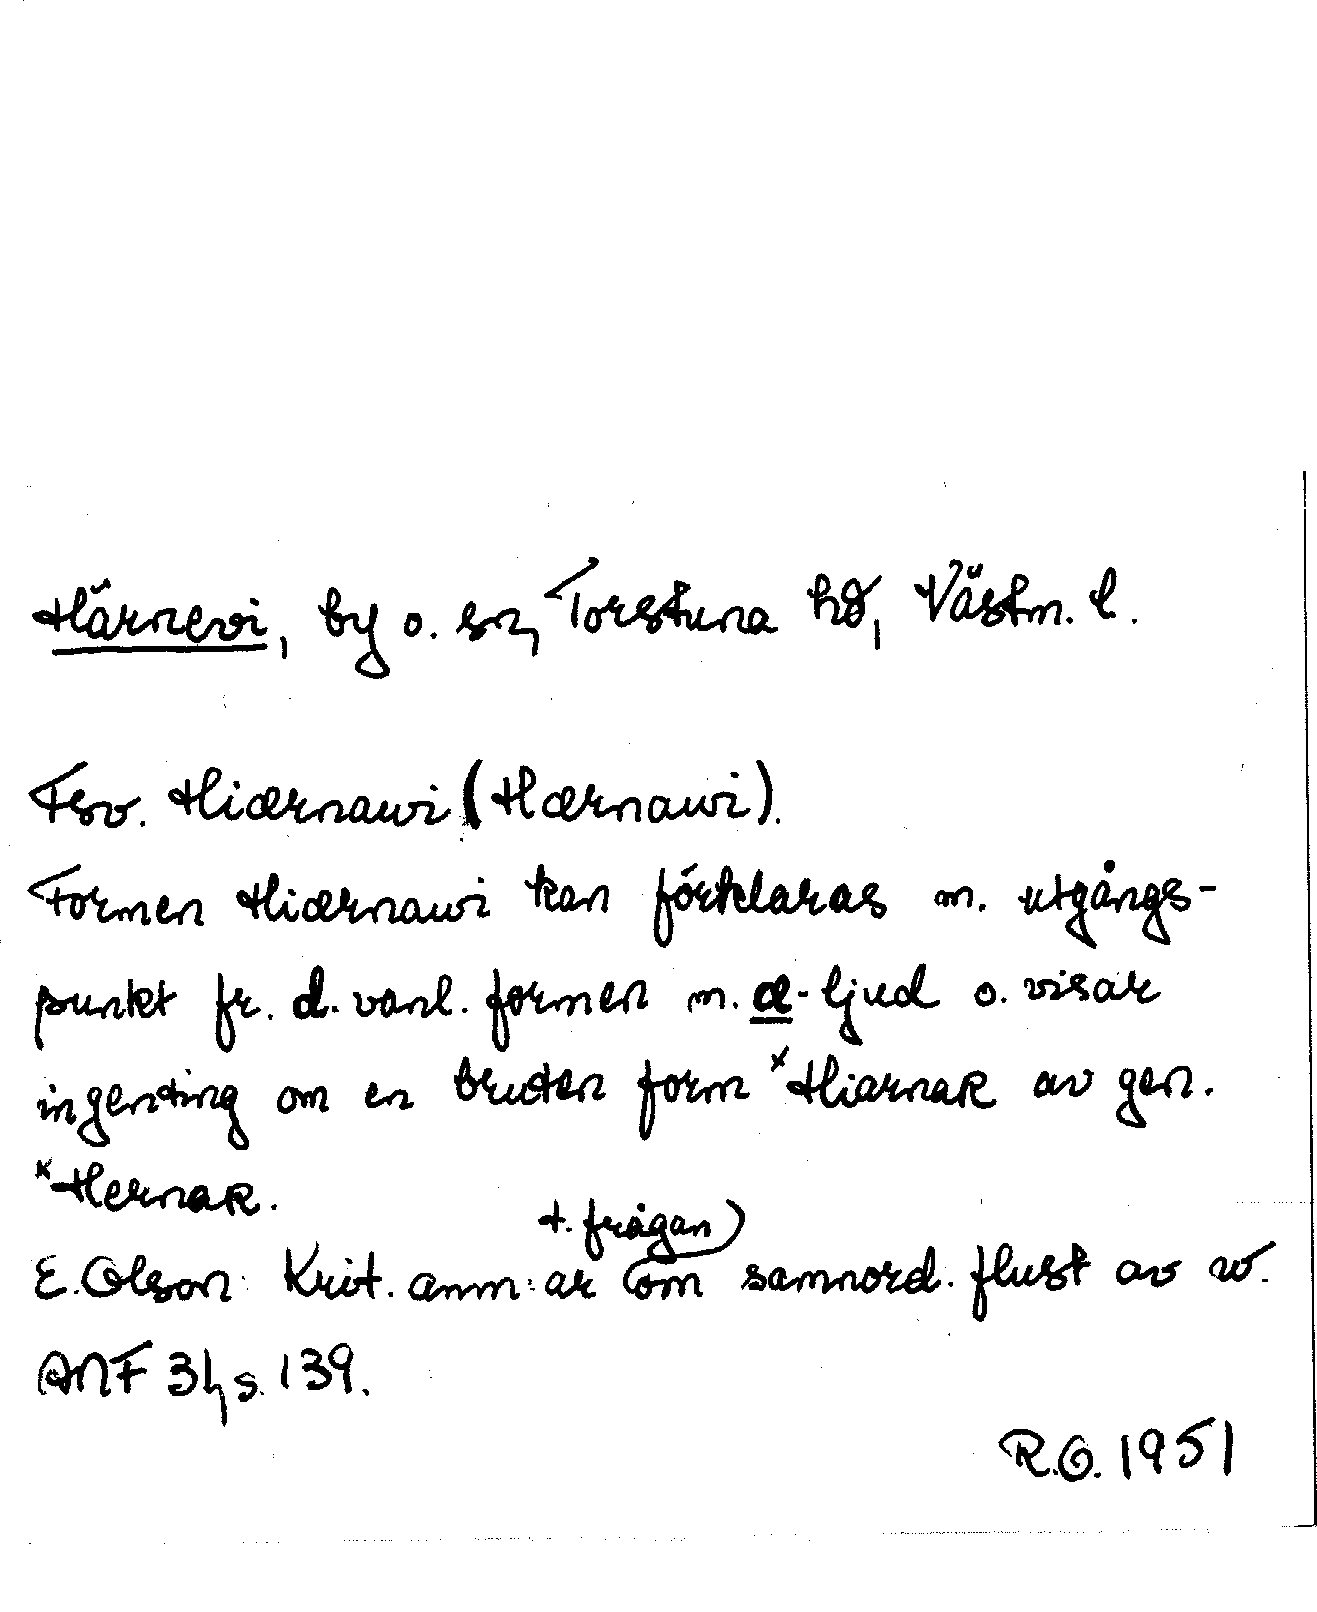 Härnevi, by o. sn, Torstuna hd, Västm. l.
Fsv. Hiærnawi (Hærnawi).
Formen Hiærnawi kan förklaras m. utgångs-
punkt fr. d. vanl. formen m. æ-ljud o. visar
ingenting om en bruten form ˣHiarnaR av gen.
ˣHernaR.
t. frågan)
E. Olson: Krit. anm:ar (om samnord. -flust av w.
ANF 31, s. 139.
R.O. 1951